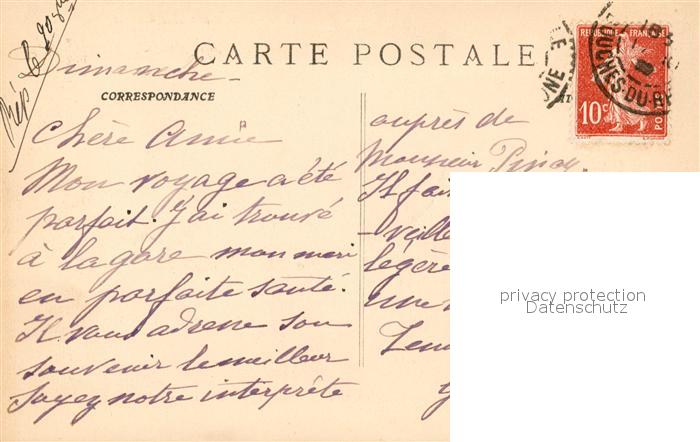 Rép le
CARTE POSTALE
Dimanche -
CORRESPONDANCE
Chère Amie
Mon voyage a été
parfait. J'ai trouvé
à la gare mon mari
en parfaite santé.
Il vous adresse son
souvenir le meilleur
Soyez notre interprète
auprès de
Monsieur
Il fai
- veille
légère
une
REPUBLIQUE FRANÇAISE
10c
POS
BOUCHES-DU-RH
NE
privacy protection
Datenschutz